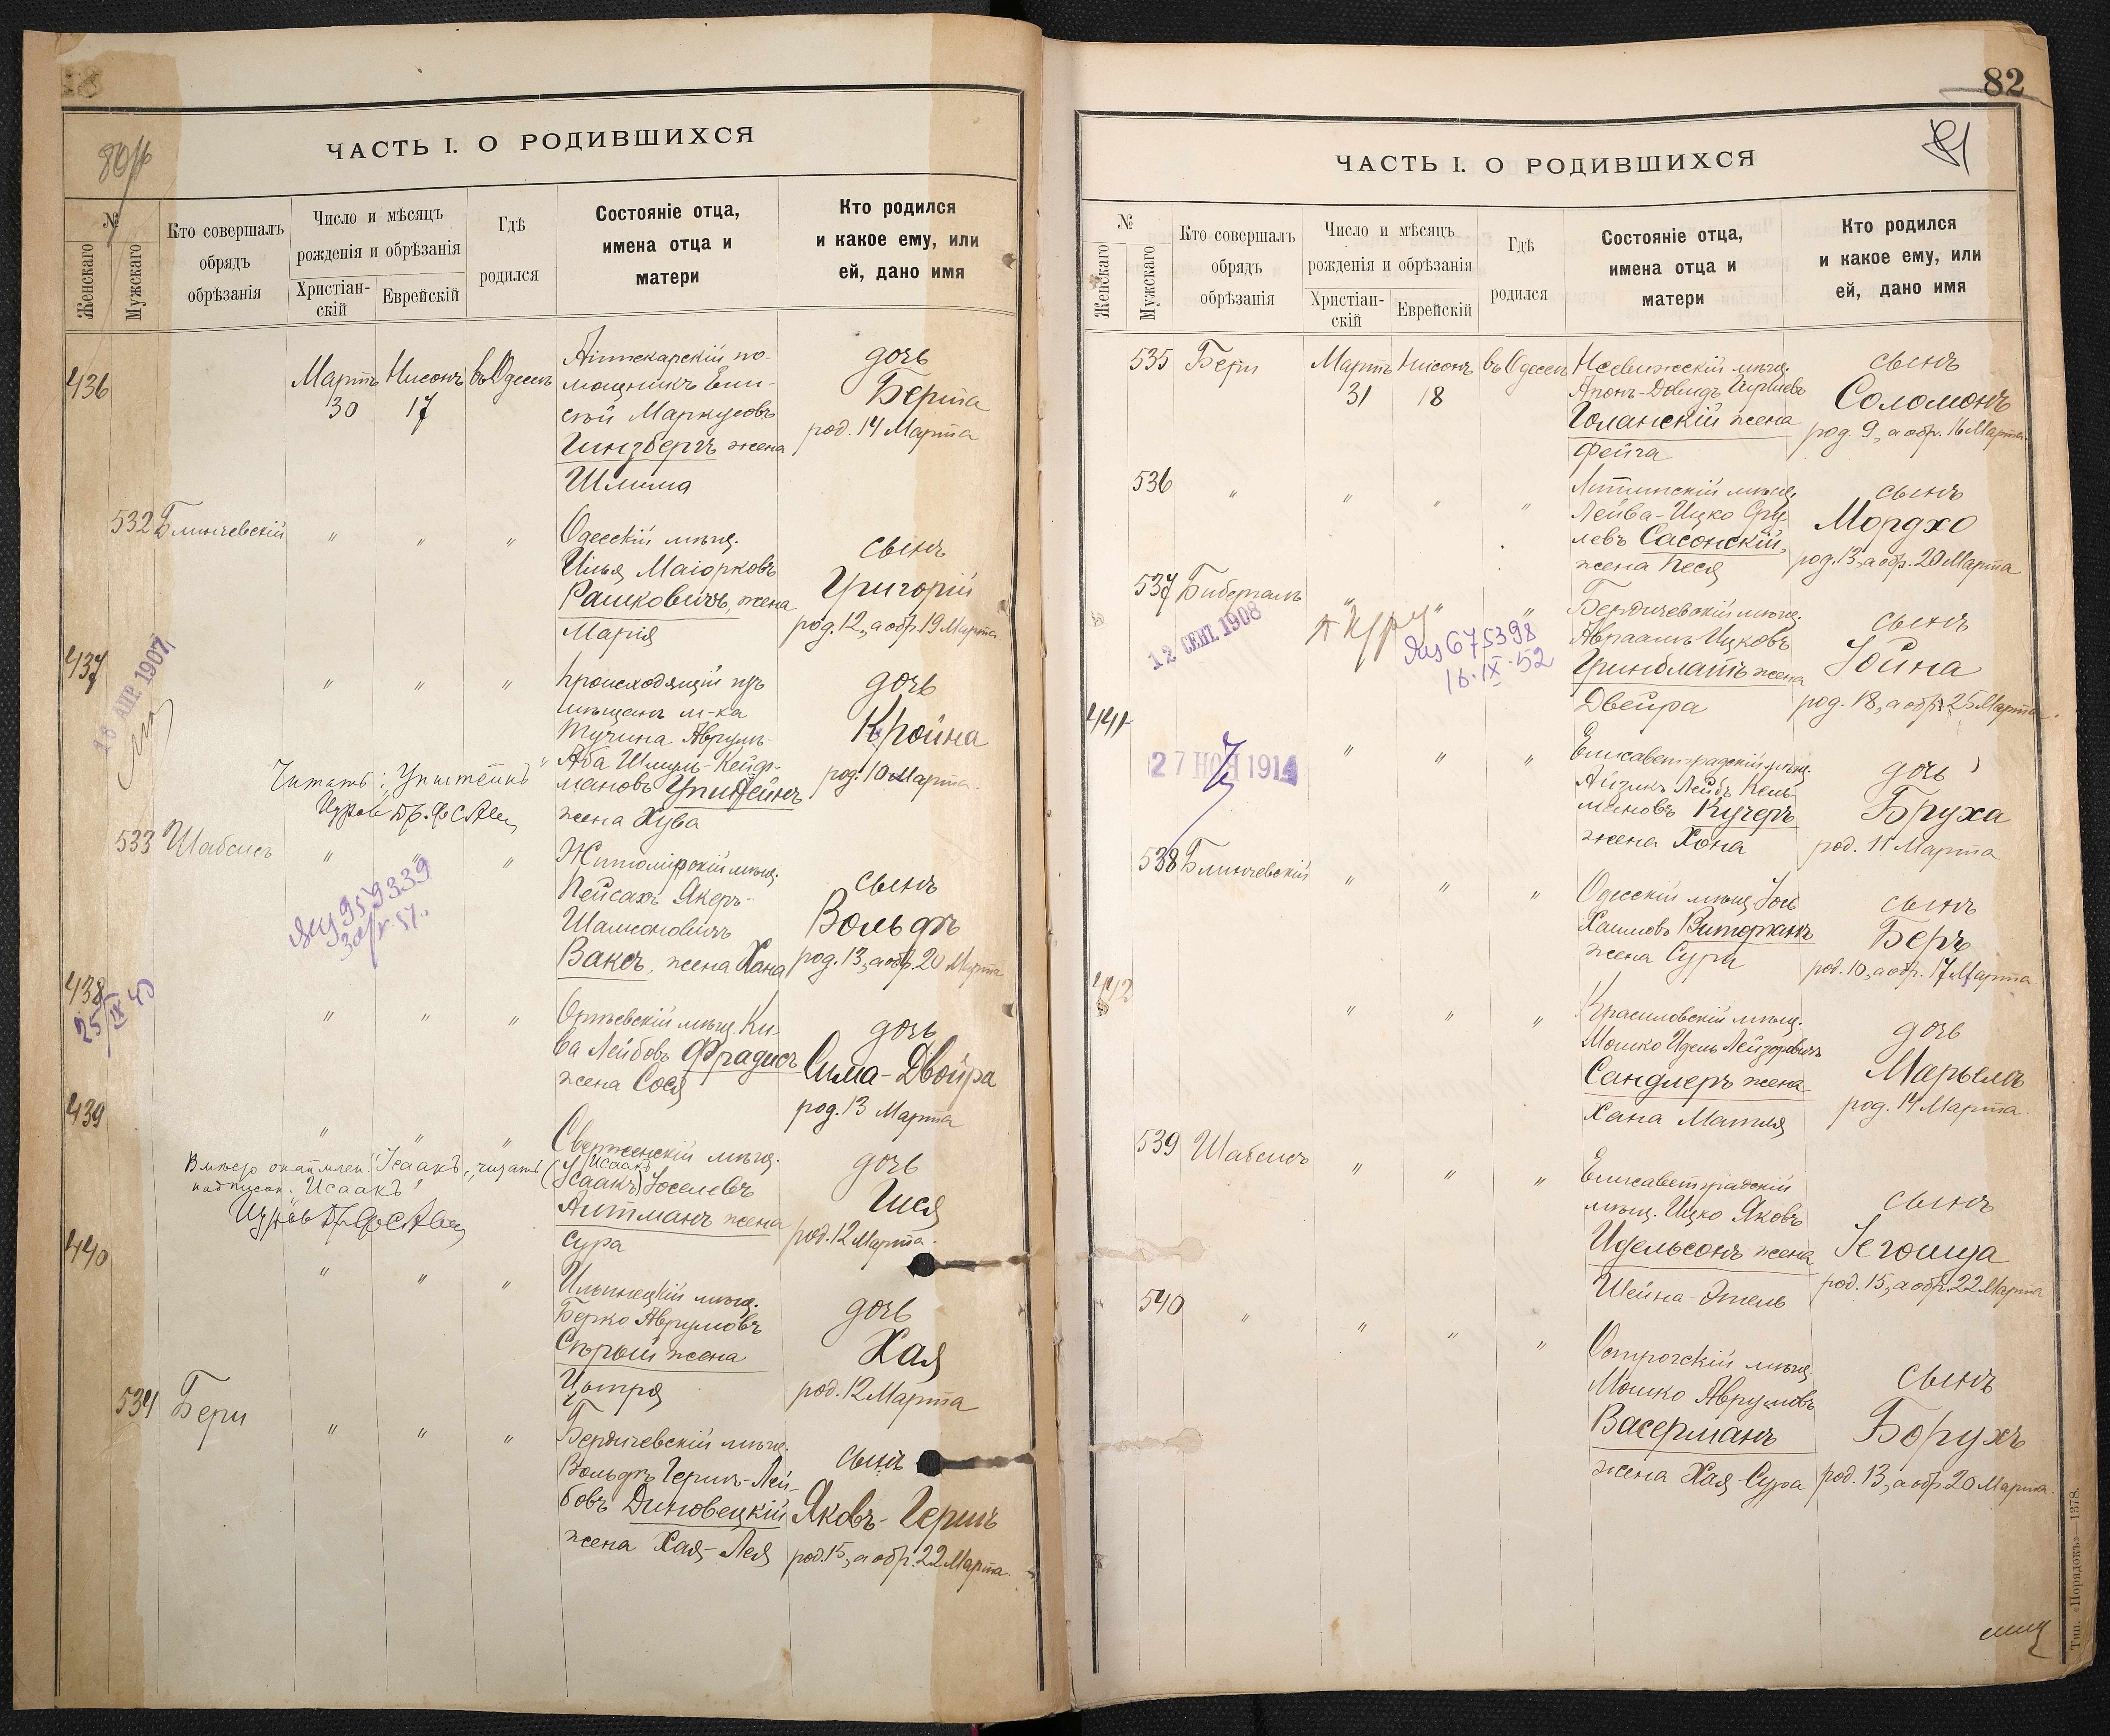 ЧАСТЬ I. О РОДИВШИХСЯ
№
Женскаго
Мужскаго
Кто совершалъ
обрядъ
обрѣзанія
Число и мѣсяцъ
рожденія и обрѣзанія
Христіан-
скій
Еврейскій
Гдѣ
родился
Состояніе отца,
имена отца и
матери
Кто родился
и какое ему, или
ей, дано имя
436
Мартъ
30
Нисонъ
17
въ Одессѣ
Аптекарскій по-
мощникъ Ели-
Маркусовъ
Гинзбергъ жена
Шлима
дочь
Берта
род. 14 Марта
532
Блинчевскій
"
"
"
Одесскій мѣщ.
Илья Маіорковъ
Рашковичъ, жена
Марія
сынъ
Григорій
род. 12, а обр. 19 Марта
437
АПР. 1907
"
"
"
Происходящій изъ
мѣщанъ м-ка
Тучина Аврумъ-
Аба Шмулъ-Кейф-
мановъ
жена Хува
дочь
Кройна
род. 10 Марта
Читать: "Упштейнъ"
533
Шабсисъ
"
"
"
Житомірскій мѣщ.
Пейсахъ Якеръ-
Шамсоновичъ
Ваксъ, жена Хана
сынъ
Вольфъ
род. 13, а обр. 20 Марта
959339
438
25/IX 40
"
"
"
мѣщ. Ки-
ва Лейбовъ Фрадисъ
жена Сося
дочь
Сима-Двойра
род. 13 Марта
439
"
"
"
Сверженскій мѣщ.
Исаакъ
(Исаакъ) Іоселевъ
Литманъ жена
Сура
дочь
Гися
род. 12 Марта.
читать
"Исаакъ"
440
"
"
"
Ильинецкій мѣщ.
Берко Аврумовъ
Сѣрый жена
Ципря
дочь
Хая
род. 12 Марта
534
Бери
"
"
"
Бердичевскій мѣщ.
Вольфъ Гершъ-Лей-
бовъ Диновецкій
жена Хая-Лея
сынъ
Яковъ-Гершъ
род. 15, а обр. 22 Марта.
82
81
ЧАСТЬ I. О РОДИВШИХСЯ
№
Женскаго
Мужскаго
Кто совершалъ
обрядъ
обрѣзанія
Число и мѣсяцъ
рожденія и обрѣзанія
Христіан-
скій
Еврейскій
Гдѣ
родился
Состояніе отца,
имена отца и
матери
Кто родился
и какое ему, или
ей, дано имя
535
Бери
Мартъ
31
Нисонъ
18
въ Одессѣ
Несвижскій мѣщ.
Аронъ-Довидъ
Голанскій жена
Фейга
сынъ
Соломонъ
род. 9, а обр. 16 Марта.
536
"
"
"
"
мѣщ.
Лейба-Ицко Сру-
левъ Сасонскій,
жена Песя
сынъ
Мордхо
род. 13, а обр. 20 Марта
537
Биберталъ
12 СЕН. 1908
675398
16.IX.52
"
"
"
Бердичевскій мѣщ.
Авраамъ Ицковъ
Гринблатъ жена
Двейра
сынъ
Іойна
род. 18, а обр. 25 Марта.
441
27 НОЯ 1914
"
"
"
Елисаветградскій мѣщ.
Айзикъ Лейбъ Кель-
мановъ Кучеръ
жена Хона
дочь
Бруха
род. 11 Марта
538
Блинчевскій
"
"
"
Одесскій мѣщ. Іось
Хаимовъ Витерманъ
жена Сура
сынъ
Беръ
род. 10, а обр. 17 Марта
442
"
"
"
Красиловскій мѣщ.
Мошко Идель Лейзоровичъ
Сандлеръ жена
Хана Матля
дочь
Марьемъ
род. 14 Марта.
539
Шабсисъ
"
"
"
Елисаветградскій
мѣщ. Ицко Яковъ
Идельсонъ жена
Шейна-Этель
сынъ
Іегошуа
род. 15, а обр. 22 Марта
540
"
"
"
"
Острогскій мѣщ.
Мошко Аврумовъ
Васерманъ
жена Хая-Сура
сынъ
Борухъ
род. 13, а обр. 20 Марта.
Тип. «Порядокъ» 1378.